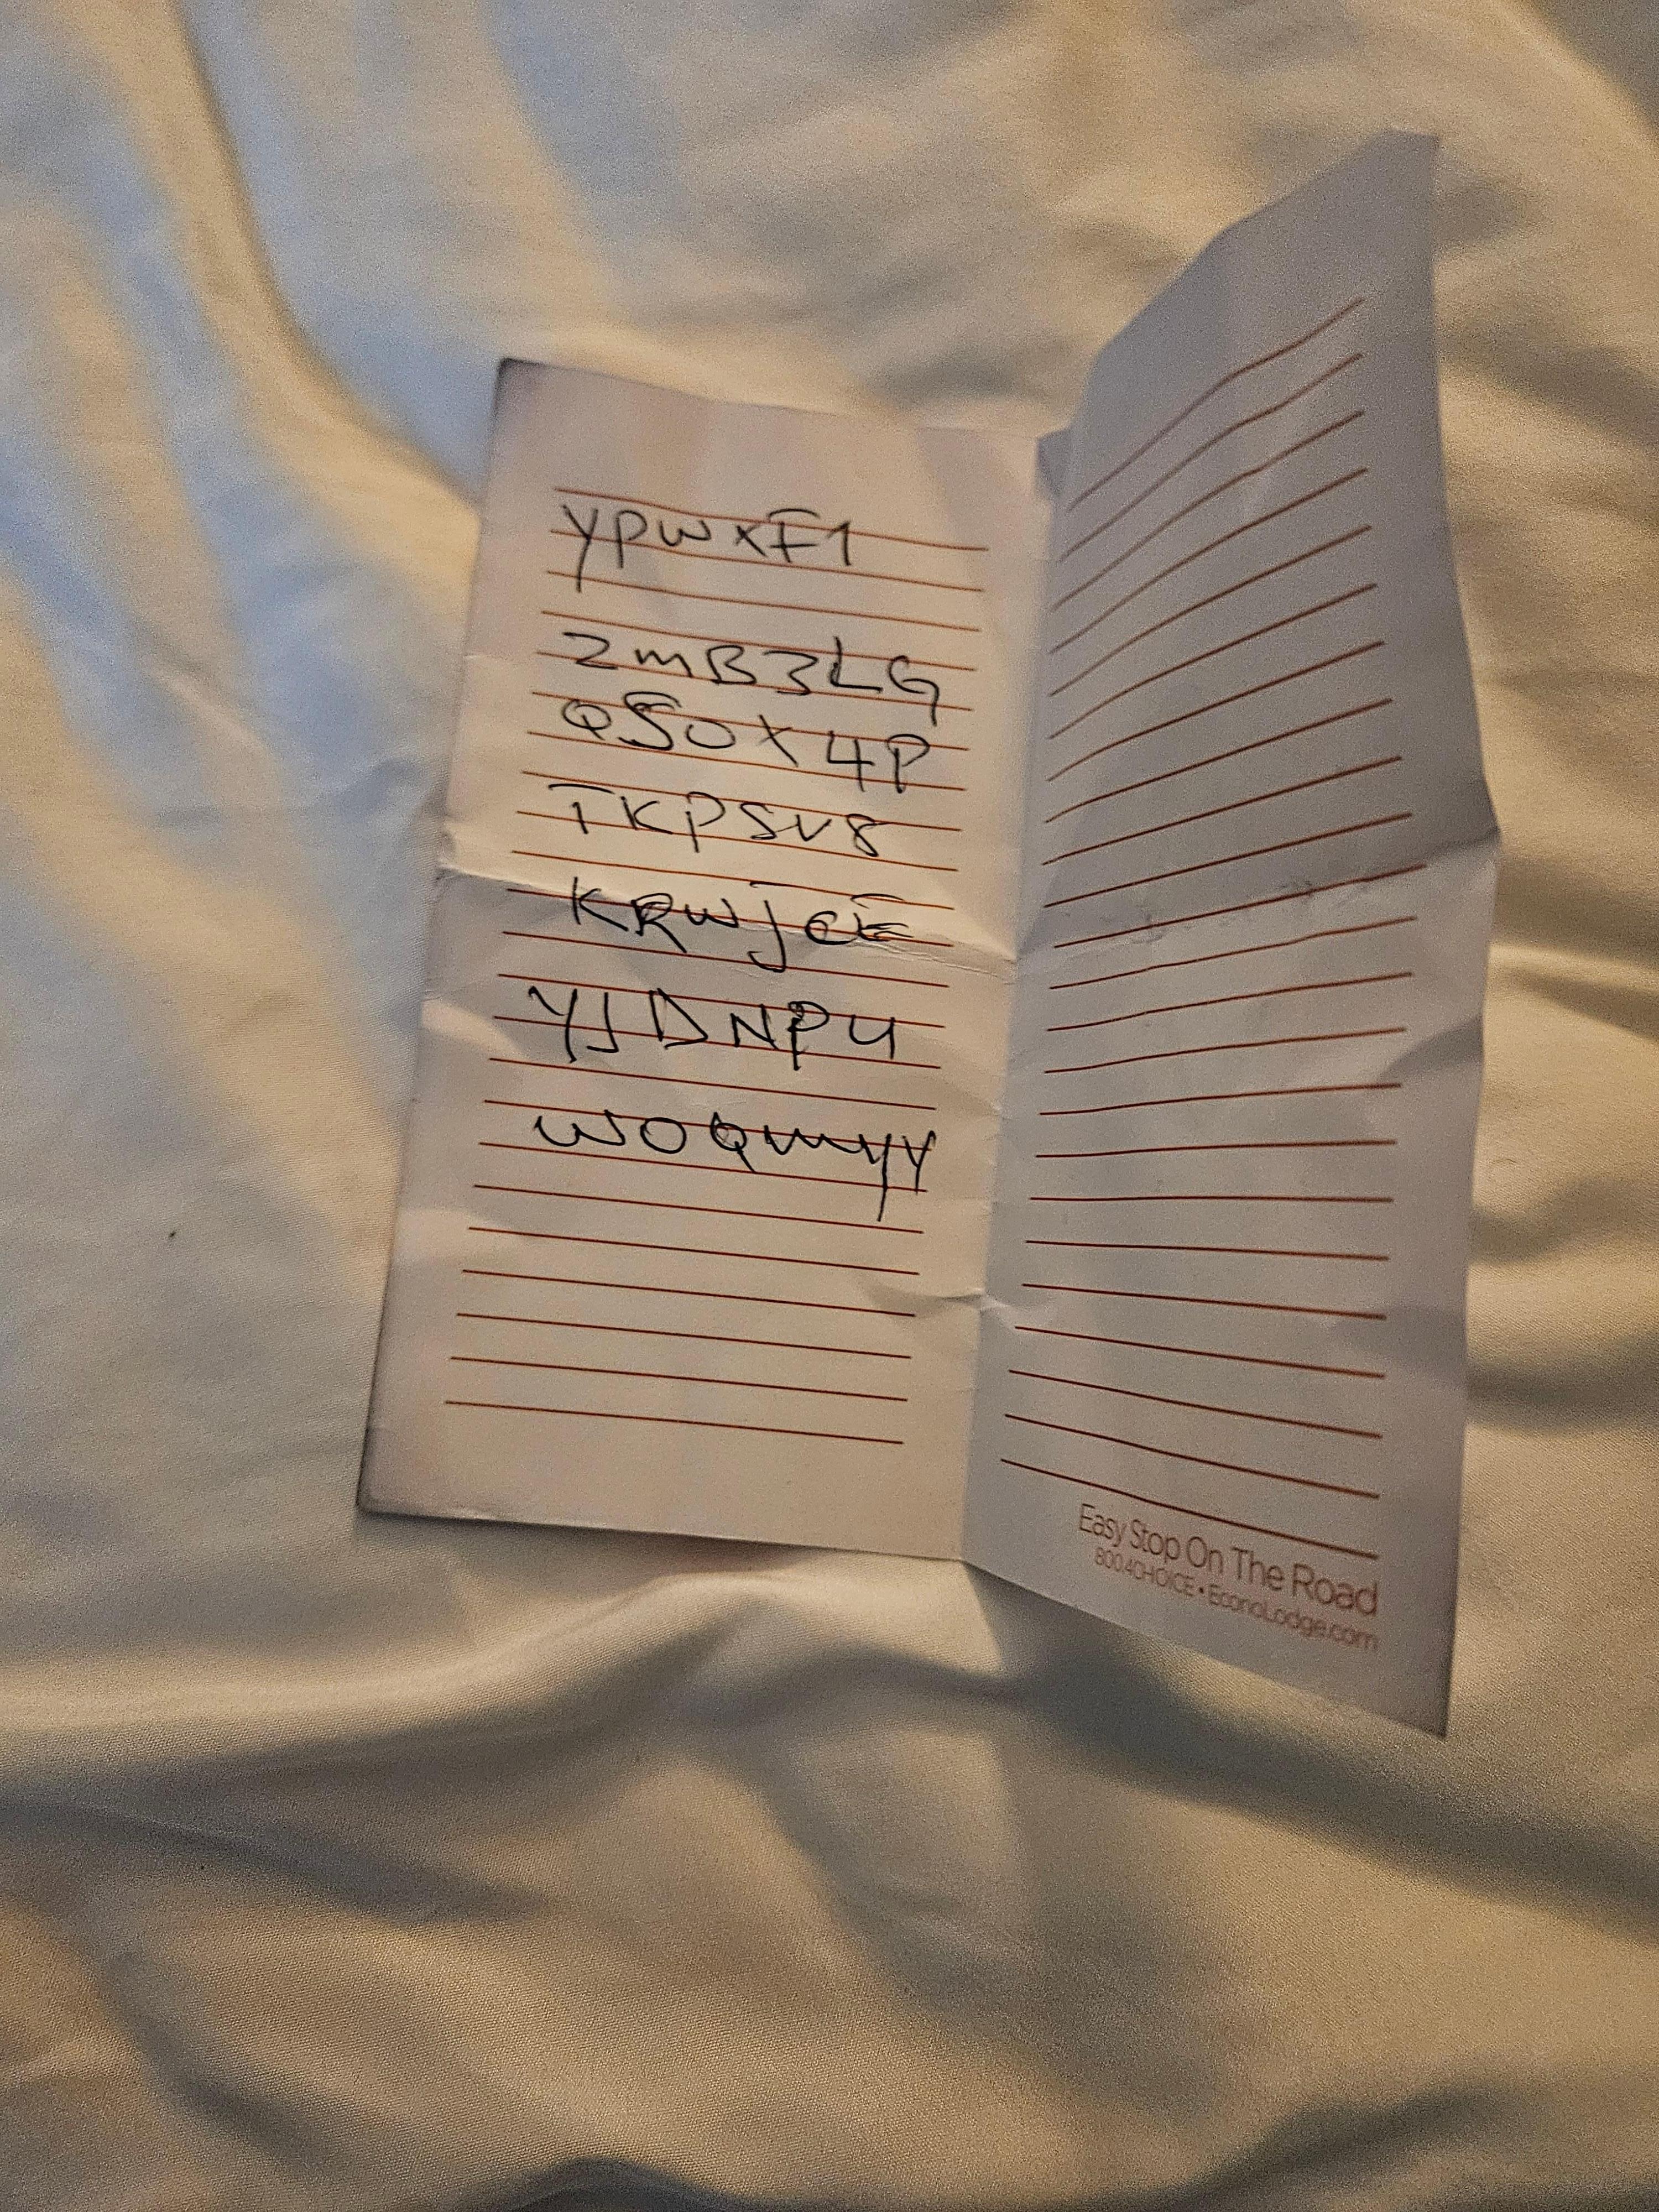 YPWXF1
2mB3LG
QSOX4P
TKPSV8
KRWJCE
YJDNPU
WOQMYY
Easy Stop On The Road
800.4CHOICE • EconoLodge.com